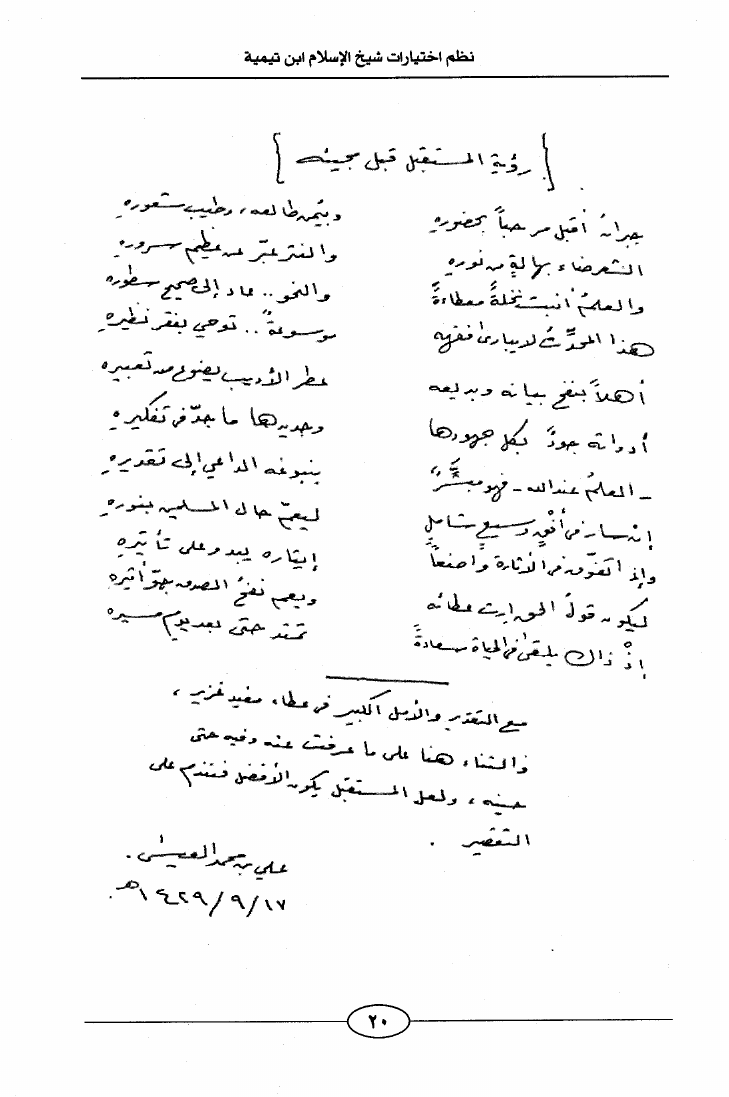 نظم اختيارات شيخ الإسلام ابن تيمية
[رؤية المستقبل قبل مجيئه]
جبرانُ أقبل مرحباً بحضورهِ وبيُمن طالعه، وطيب شعورهِ
الشعر ضاء بهالةٍ من نورهِ والنثر عبّر عن عظيم سرورهِ
والعلمُ أنبت نخلةً معطاءةً والنحو.. عاد إلى صحيح سطوره
هذا المحدِّثُ لا يبارى فقهه موسوعةٌ.. توحي بفقر نظيرهِ
أهلاً بنفح بيانه وبديعه عطر الأديب يضوع من تعبيره
أدواته جودٌ بكل جهودها وجديدها ما جدّ في تفكيرهِ
- المعلمُ عند الله - فهو مبشَّرٌ بنبوغه الداعي إلى تقديرهِ
إن سار في أفْقٍ وسيعٍ شاملٍ ليعمّ حال المسلمين بنورهِ
وإذ التفوّق في الأثارة واضعاً إيثاره يبدو على تأثيرهِ
ليكون قولُ الحق إرث عطائه ويعم نفحُ الصدق جوّ أثيرهِ
إذْ ذاك يلقى في الحياة سعادةً تمتد حتى بعد يوم مسيره
مع التقدير والأمل الكبير في عطاء مفيد غزير،
والثناء هنا على ما عرفت عنه وفيه حتى
حينه، ولعل المستقبل يكون الأفضل فنندم على
التقصير.
علي بن محمد العيسى.
١٤٢٩/٩/١٧هـ.
٢٠